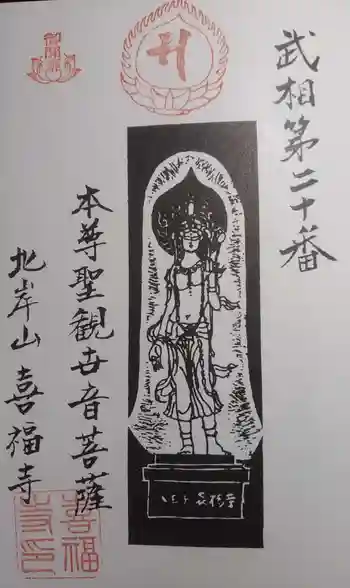 武相第二十番
本尊聖観世音菩薩
北岸山喜福寺
喜福
寺印